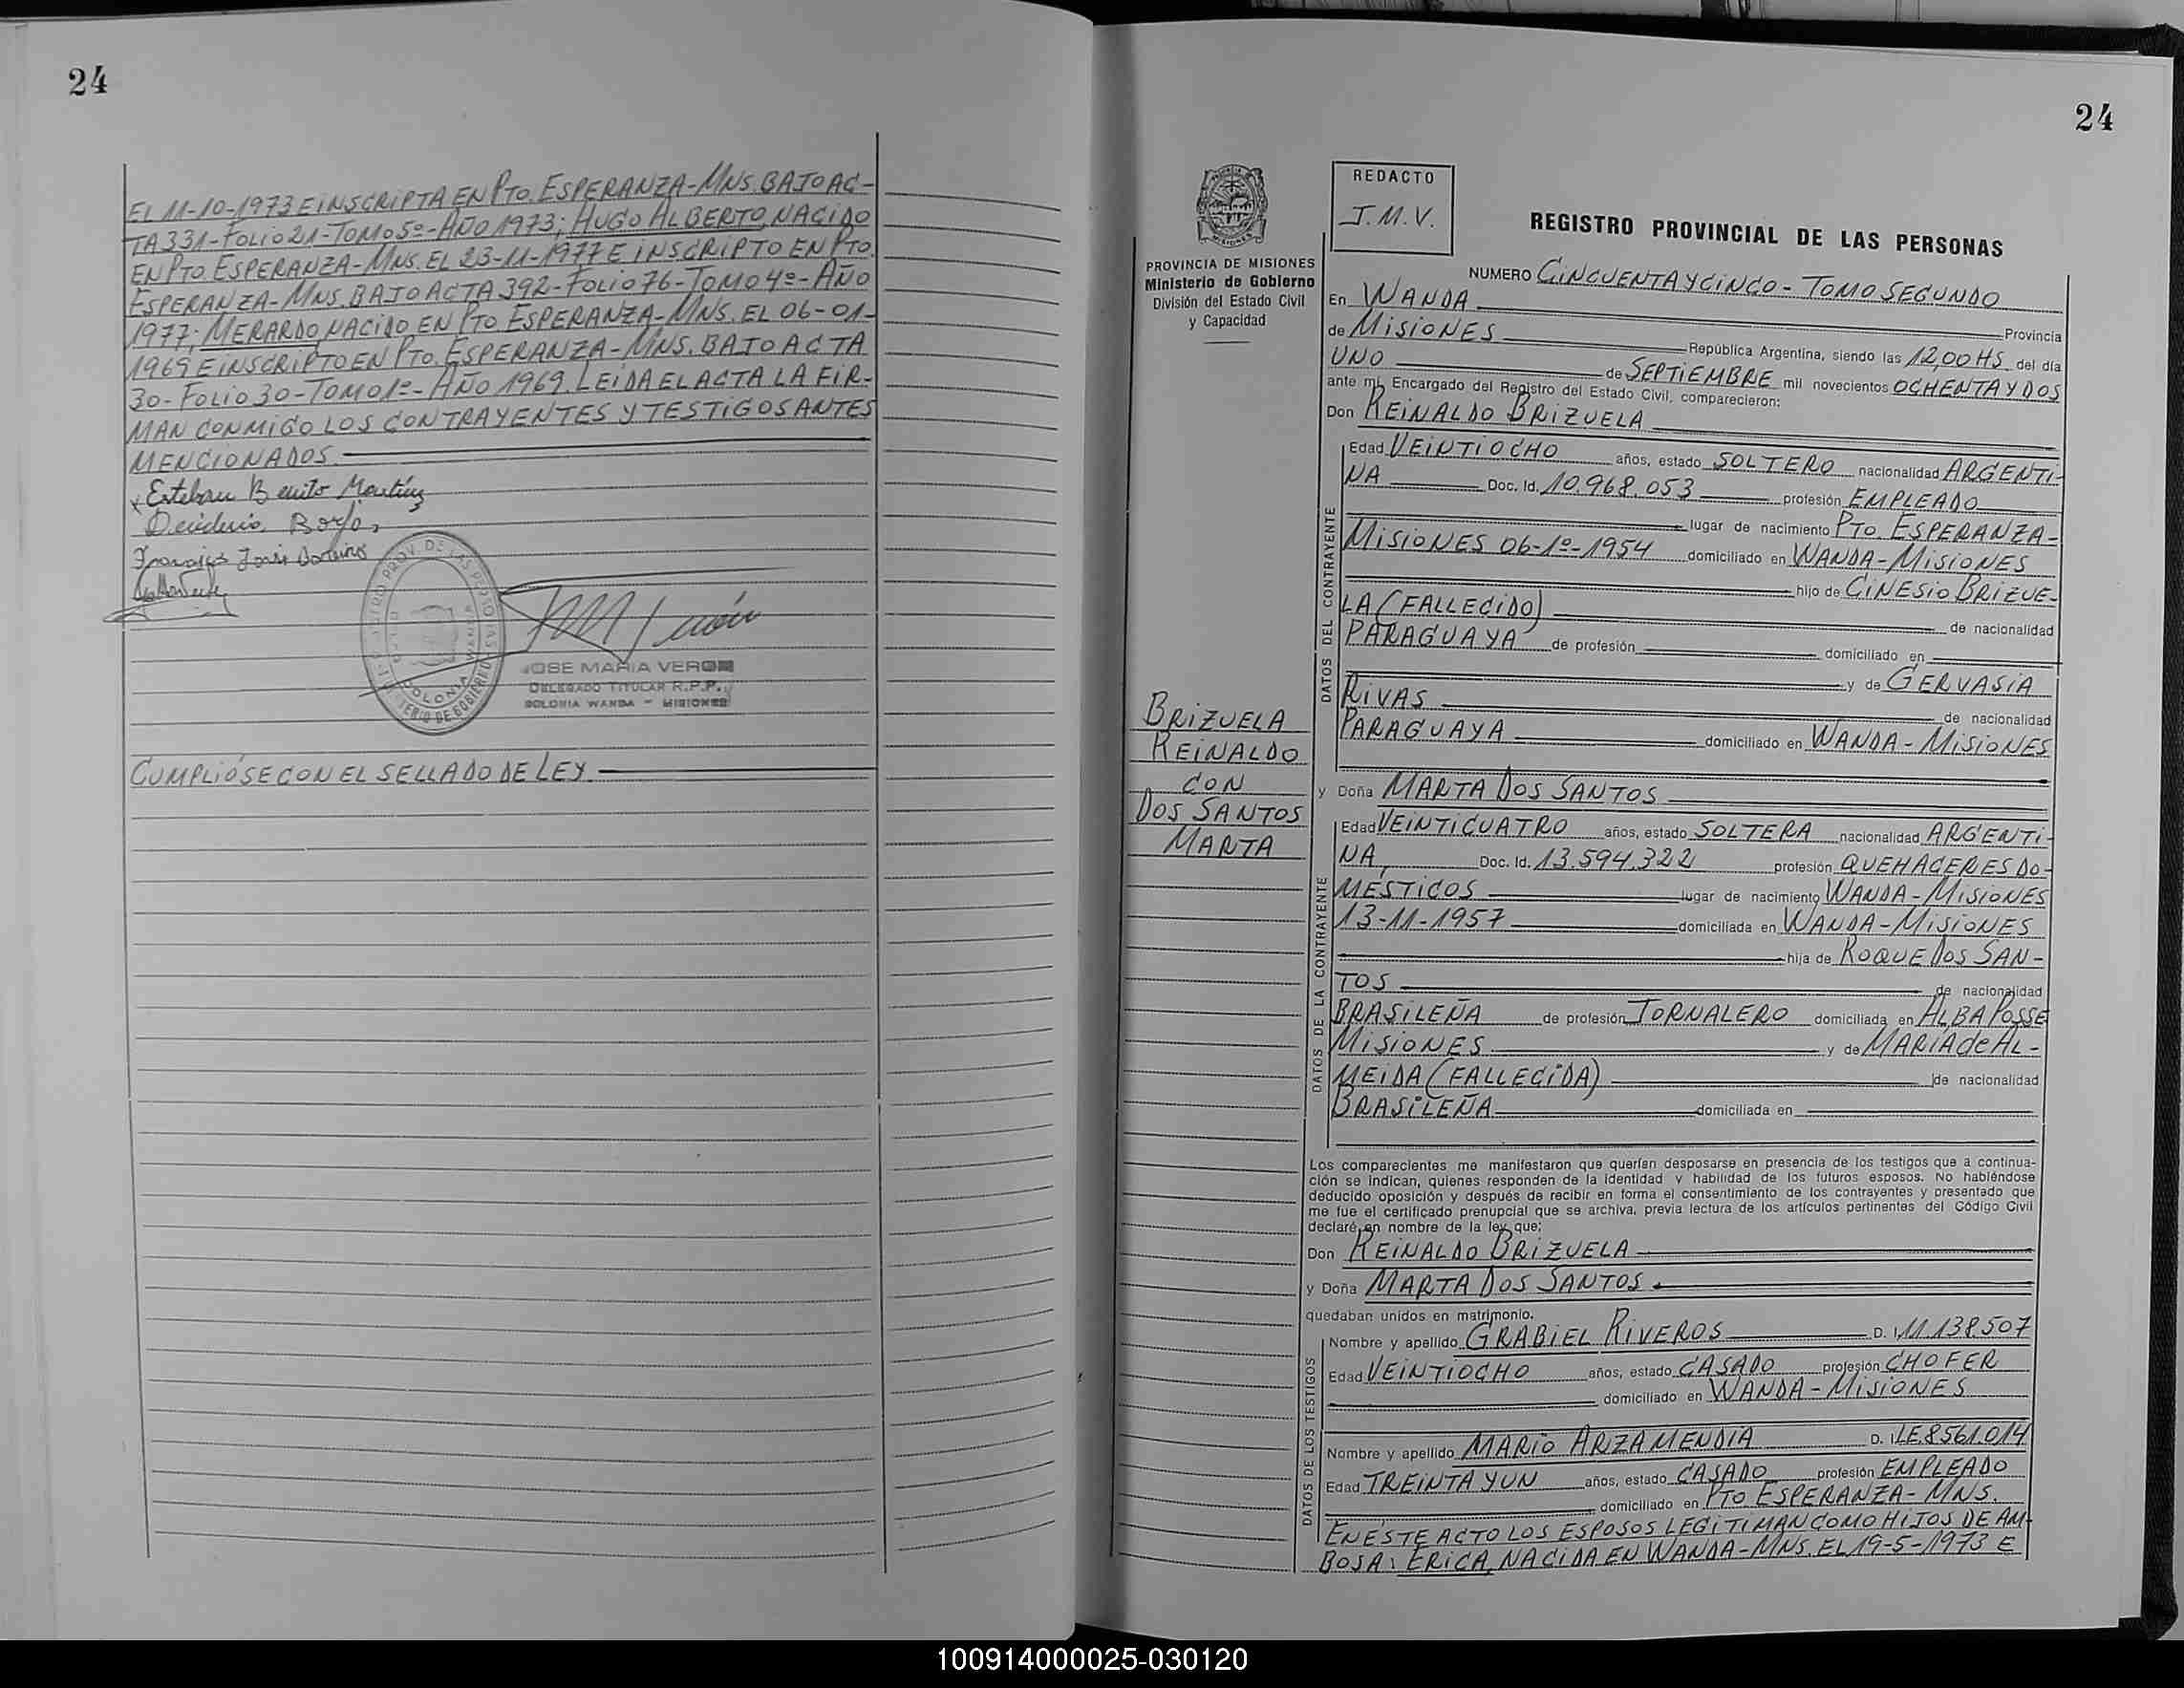 24
EL 11-10-1973 E INSCRIPTA EN PTO. ESPERANZA-MNS. BAJO AC-
TA 331-FOLIO 21-TOMO 5º-AÑO 1973; HUGO ALBERTO, NACIDO
EN PTO. ESPERANZA-MNS. EL 23-11-1977 E INSCRIPTO EN PTO.
ESPERANZA-MNS. BAJO ACTA 392-FOLIO 76-TOMO 4º-AÑO
1977; MERARDO, NACIDO EN PTO ESPERANZA-MNS. EL 06-01-
1969 E INSCRIPTO EN PTO. ESPERANZA-MNS. BAJO ACTA
30-FOLIO 30-TOMO 1º-AÑO 1969. LEIDA EL ACTA LA FIR-
MAN CONMIGO LOS CONTRAYENTES Y TESTIGOS ANTES
MENCIONADOS.
x Esteban Benito Martínez
JOSE MARIA VERON
DELEGADO TITULAR R.P.P.
COLONIA WANDA - MISIONES
CUMPLIÓSE CON EL SELLADO DE LEY.
24
REDACTO
J.M.V.
REGISTRO PROVINCIAL DE LAS PERSONAS
PROVINCIA DE MISIONES
Ministerio de Gobierno
División del Estado Civil
y Capacidad
BRIZUELA
REINALDO
CON
DOS SANTOS
MARTA
NUMERO CINCUENTA Y CINCO - TOMO SEGUNDO
En WANDA Provincia
de MISIONES República Argentina, siendo las 12,00 HS. del día
UNO de SEPTIEMBRE mil novecientos OCHENTA Y DOS
ante mí, Encargado del Registro del Estado Civil, comparecieron:
Don REINALDO BRIZUELA
DATOS DEL CONTRAYENTE
Edad VEINTIOCHO años, estado SOLTERO nacionalidad ARGENTI-
NA Doc. Id. 10.968.053 profesión EMPLEADO
lugar de nacimiento PTO. ESPERANZA-
MISIONES 06-1º-1954 domiciliado en WANDA-MISIONES
hijo de CINESIO BRIZUE-
LA (FALLECIDO) de nacionalidad
PARAGUAYA de profesión domiciliado en
y de GERVASIA
RIVAS de nacionalidad
PARAGUAYA domiciliado en WANDA-MISIONES
y Doña MARTA DOS SANTOS
DATOS DE LA CONTRAYENTE
Edad VEINTICUATRO años, estado SOLTERA nacionalidad ARGENTI-
NA, Doc. Id. 13.594.322 profesión QUEHACERES DO-
MESTICOS lugar de nacimiento WANDA-MISIONES
13-11-1957 domiciliada en WANDA-MISIONES
hija de ROQUE DOS SAN-
TOS de nacionalidad
BRASILEÑA de profesión JORNALERO domiciliada en ALBA POSSE
MISIONES y de MARIA de AL-
MEIDA (FALLECIDA) de nacionalidad
BRASILEÑA domiciliada en
Los comparecientes me manifestaron que querían desposarse en presencia de los testigos que a continua-
ción se indican, quienes responden de la identidad y habilidad de los futuros esposos. No habiéndose
deducido oposición y después de recibir en forma el consentimiento de los contrayentes y presentado que
me fue el certificado prenupcial que se archiva, previa lectura de los artículos pertinentes del Código Civil
declaré en nombre de la ley que:
Don REINALDO BRIZUELA
y Doña MARTA DOS SANTOS
quedaban unidos en matrimonio.
DATOS DE LOS TESTIGOS
Nombre y apellido GRABIEL RIVEROS D. I. 11.138.507
Edad VEINTIOCHO años, estado CASADO profesión CHOFER
domiciliado en WANDA-MISIONES
Nombre y apellido MARIO ARZAMENDIA D. I. LE.8561.014
Edad TREINTA Y UN años, estado CASADO profesión EMPLEADO
domiciliado en PTO ESPERANZA-MNS.
EN ESTE ACTO LOS ESPOSOS LEGITIMAN COMO HIJOS DE AM-
BOS A: ERICA, NACIDA EN WANDA-MNS. EL 19-5-1973 E
100914000025-030120